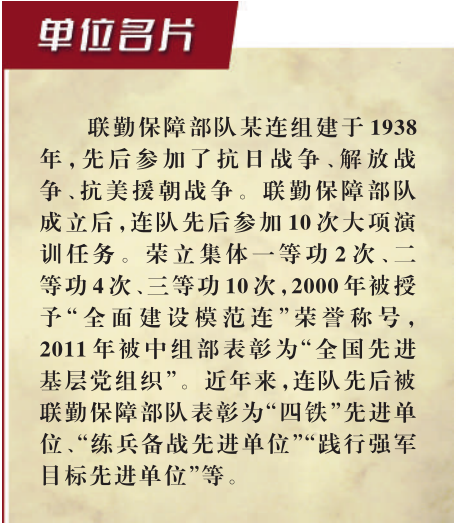 单位名片
联勤保障部队某连组建于1938
年，先后参加了抗日战争、解放战
争、抗美援朝战争。联勤保障部队
成立后，连队先后参加10次大项演
训任务。荣立集体一等功2次、二
等功4次、三等功10次，2000年被授
予“全面建设模范连”荣誉称号，
2011年被中组部表彰为“全国先进
基层党组织”。近年来，连队先后被
联勤保障部队表彰为“四铁”先进单
位、“练兵备战先进单位”“践行强军
目标先进单位”等。